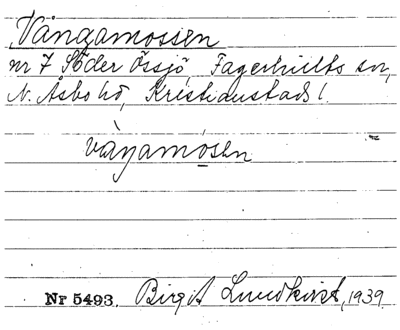 Vångamossen
nr 7 Söder Össjö, Fagerhults sn,
N. Åsbo hd, Kristianstads l.
vàŋamosen
Nr 5493. Birgit Lundkvist, 1939.